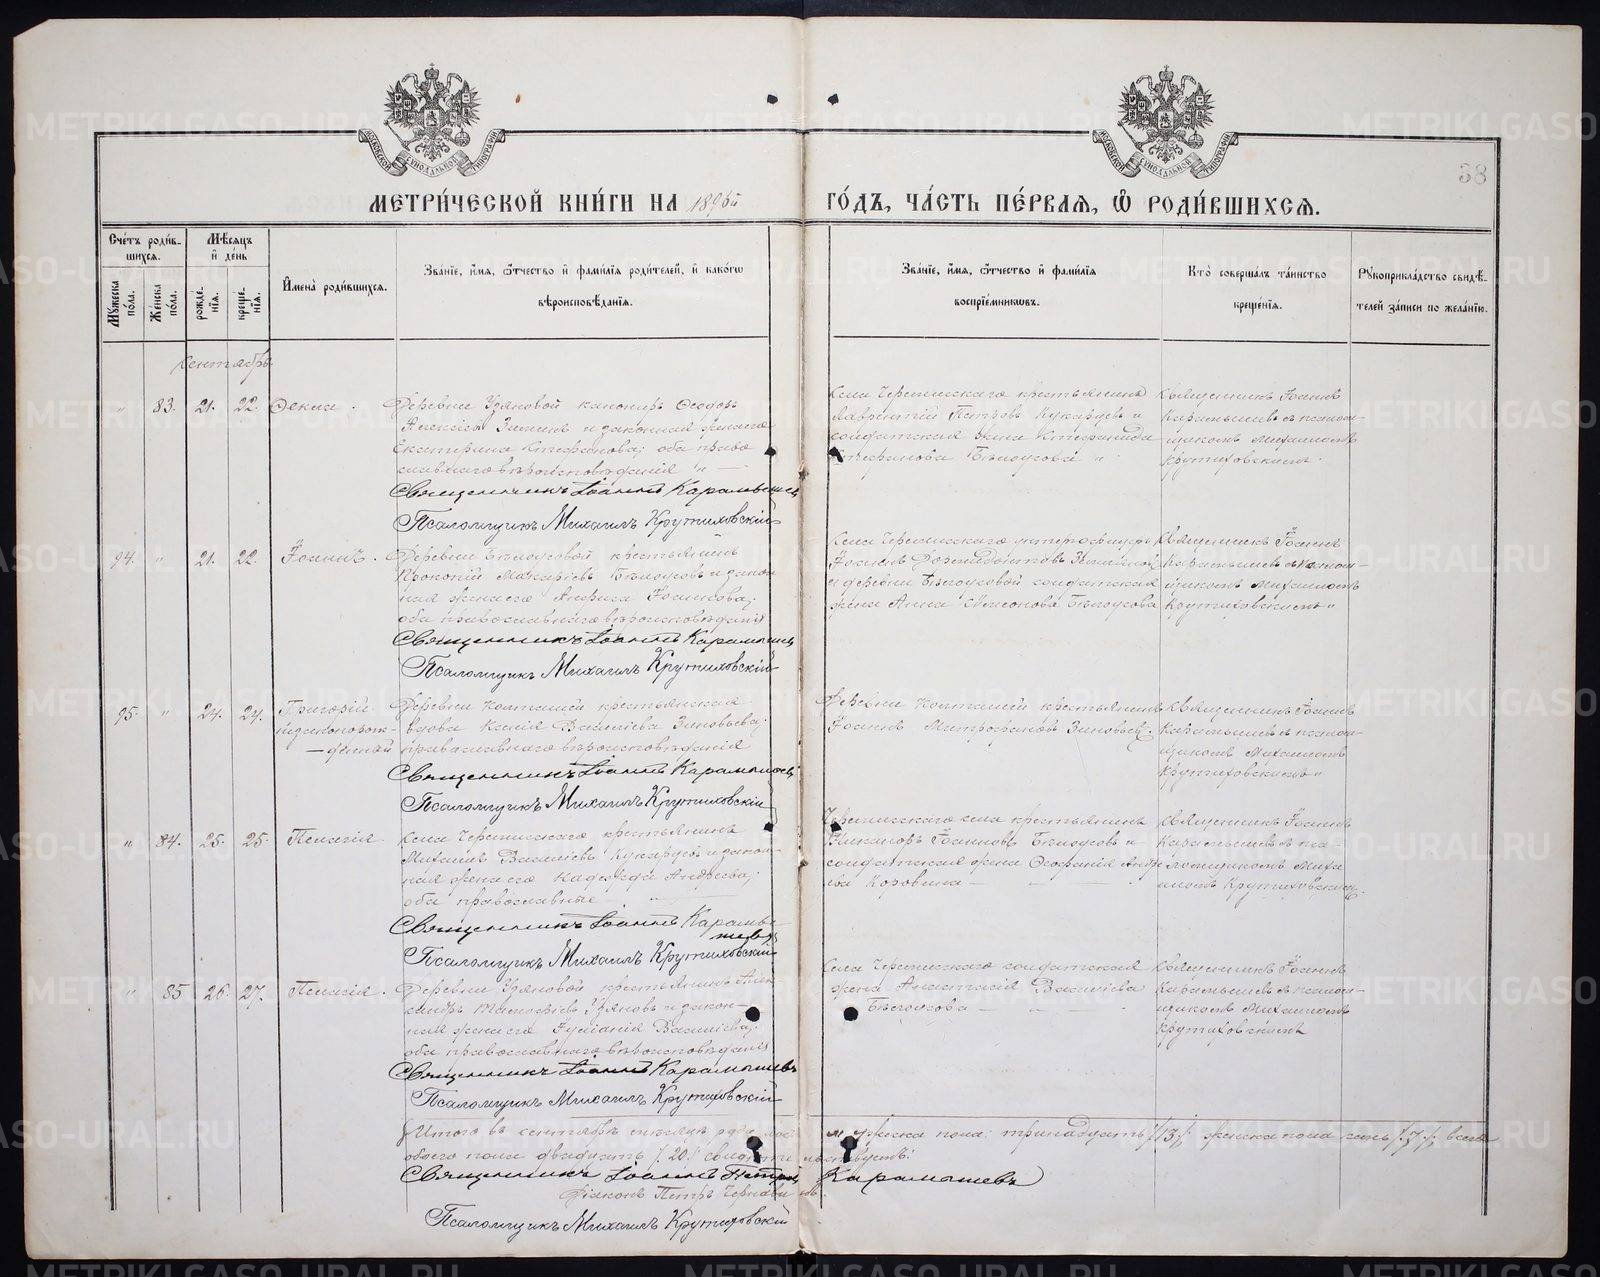 METRIKI.GASO-URAL.RU
МОСКОВСКОЙ СѴНОДАЛЬНОЙ ТИПОГРАФІИ
МОСКОВСКОЙ СѴНОДАЛЬНОЙ ТИПОГРАФІИ
38
МЕТРИ́ЧЕСКОЙ КНИ́ГИ НА 1896й ГО́ДЪ, ЧА́СТЬ ПЕ́РВАЯ, Ѽ РОДИ́ВШИХСЯ.
Счетъ родив-
шихся.
Мужеска пола.
Женска пола.
Мѣсяцъ и день
рожде-нія.
креще-нія.
Имена родившихся.
Званіе, имя, ѿтчество и фамилія родителей, и какогѡ
вѣроисповѣданія.
Званіе, имя, ѿтчество и фамилія
воспріемникѡвъ.
Кто совершалъ таинство
крещенія.
Рукоприкладство свидѣ-
телей записи по желанію.
Сентябрь
" 83. 21. 22. Ѳекла.
Деревни Узяновой канониръ Ѳеодоръ
Алексѣевъ и законная жена его
Екатерина Стефанова; оба право
славнаго вѣроисповѣданія "
Священникъ Іоаннъ Карамышевъ
Псаломщикъ Михаилъ Крутиховскій
Села Черемисскаго крестьянинъ
Лаврентій Петровъ Кукарцевъ и
солдатская жена Стефанида
Стефанова Бѣлоусова "
Священникъ Іоаннъ
Карамышевъ съ псалом-
щикомъ Михаиломъ
Крутиховскимъ.
94. " 21. 22. Іоаннъ.
Деревни Бѣлоусовой крестьянинъ
Прокопій Макаріевъ Бѣлоусовъ и закон
ная жена его Іоаннова;
оба православнаго вѣроисповѣданія
Священникъ Іоаннъ Карамышевъ
Псаломщикъ Михаилъ Крутиховскій
Села Черемисскаго
Іоаннъ
и деревни Бѣлоусовой солдатская
жена Анна Бѣлоусова
Священникъ Іоаннъ
Карамышевъ съ псалом-
щикомъ Михаиломъ
Крутиховскимъ "
95. " 24. 24. Григорій
незаконорож-
денный
Деревни Колташей крестьянская
вдова Ксенія Васильева Зиновьева;
православнаго вѣроисповѣданія
Священникъ Іоаннъ Карамышевъ
Псаломщикъ Михаилъ Крутиховскій
Деревни Колташей крестьянинъ
Іоаннъ Митрофановъ Зиновьевъ.
Священникъ Іоаннъ
Карамышевъ съ псалом-
щикомъ Михаиломъ
Крутиховскимъ "
" 84. 25. 25. Пелагія
Села Черемисскаго крестьянинъ
Михаилъ Васильевъ Кукарцевъ и закон-
ная жена его Надежда Андреева;
оба православные
Священникъ Іоаннъ Карамы-
шевъ
Псаломщикъ Михаилъ Крутиховскій
Черемисскаго села крестьянинъ
Никаноръ Іоанновъ Бѣлоусовъ и
солдатская жена Андре
ева Коровина
Священникъ Іоаннъ
Карамышевъ съ пса-
ломщикомъ Миха
иломъ Крутиховскимъ.
" 85 26. 27. Пелагія.
Деревни Узяновой крестьянинъ Алек
сандръ Тимоѳеевъ Узяновъ и закон-
ная жена его Іуліанія Васильева;
оба православнаго вѣроисповѣданія
Священникъ Іоаннъ Карамышевъ
Псаломщикъ Михаилъ Крутиховскій
Села Черемисскаго солдатская
жена Анастасія Васильева
Бѣлоусова
Священникъ Іоаннъ
Карамышевъ съ псалом-
щикомъ Михаиломъ
Крутиховскимъ
Итого въ сентябрѣ мѣсяцѣ мужеска пола: тринадцать /13/; женска пола семь /7/; всего
обоего пола двадцать /20/ свидѣтельствуемъ:
Священникъ Іоаннъ Петровъ Карамышевъ
Діаконъ Петръ
Псаломщикъ Михаилъ Крутиховскій